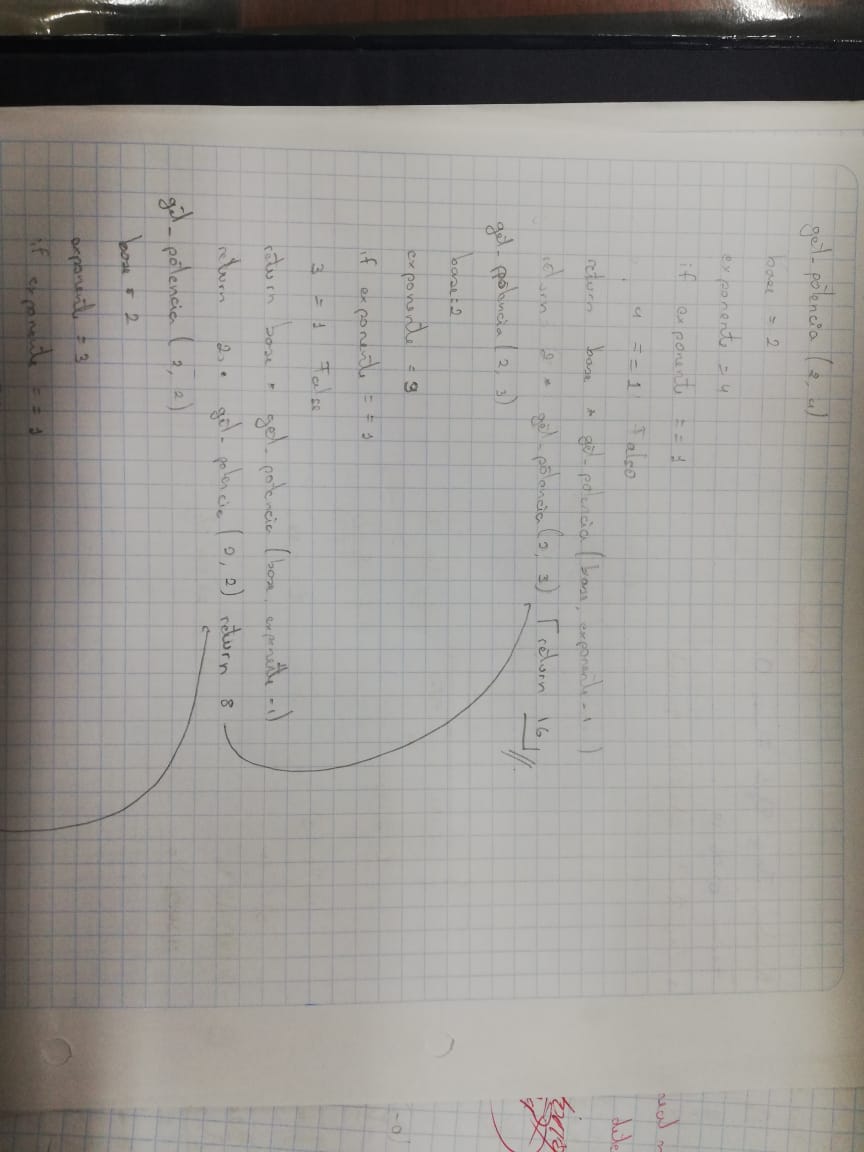 get-potencia (2, 4)
base = 2
exponente = 4
if exponente == 1
4 == 1 Falso
return base * get-potencia (base, exponente -1)
return 2 * get-potencia (2, 3) return 16
get-potencia (2, 3)
base = 2
exponente = 3
if exponente == 1
3 = 1 False
return base * get-potencia (base, exponente -1)
return 2 * get-potencia (2, 2) return 8
get-potencia (2, 2)
base = 2
exponente =
if exponente == 1